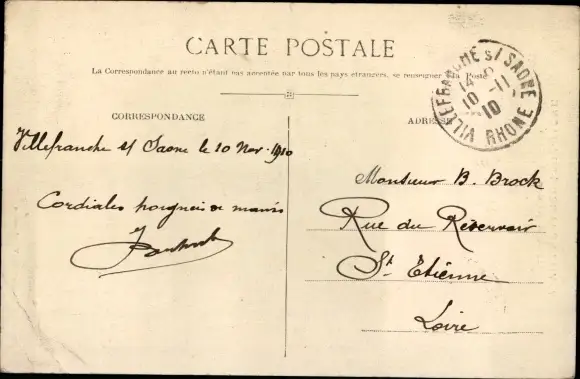 CARTE POSTALE
La Correspondance au recto n'étant pas acceptée par tous les pays étrangers, se renseigner Poste
CORRESPONDANCE
ADRESSE
VILLEFRANCHE S/ SAONE
RHONE
14
10 - 11
10
Villefranche s/ Saone le 10 Nov. 1910
Cordiales poignées de mains
Monsieur B. Brock
Rue du Réservoir
St Etienne
Loire